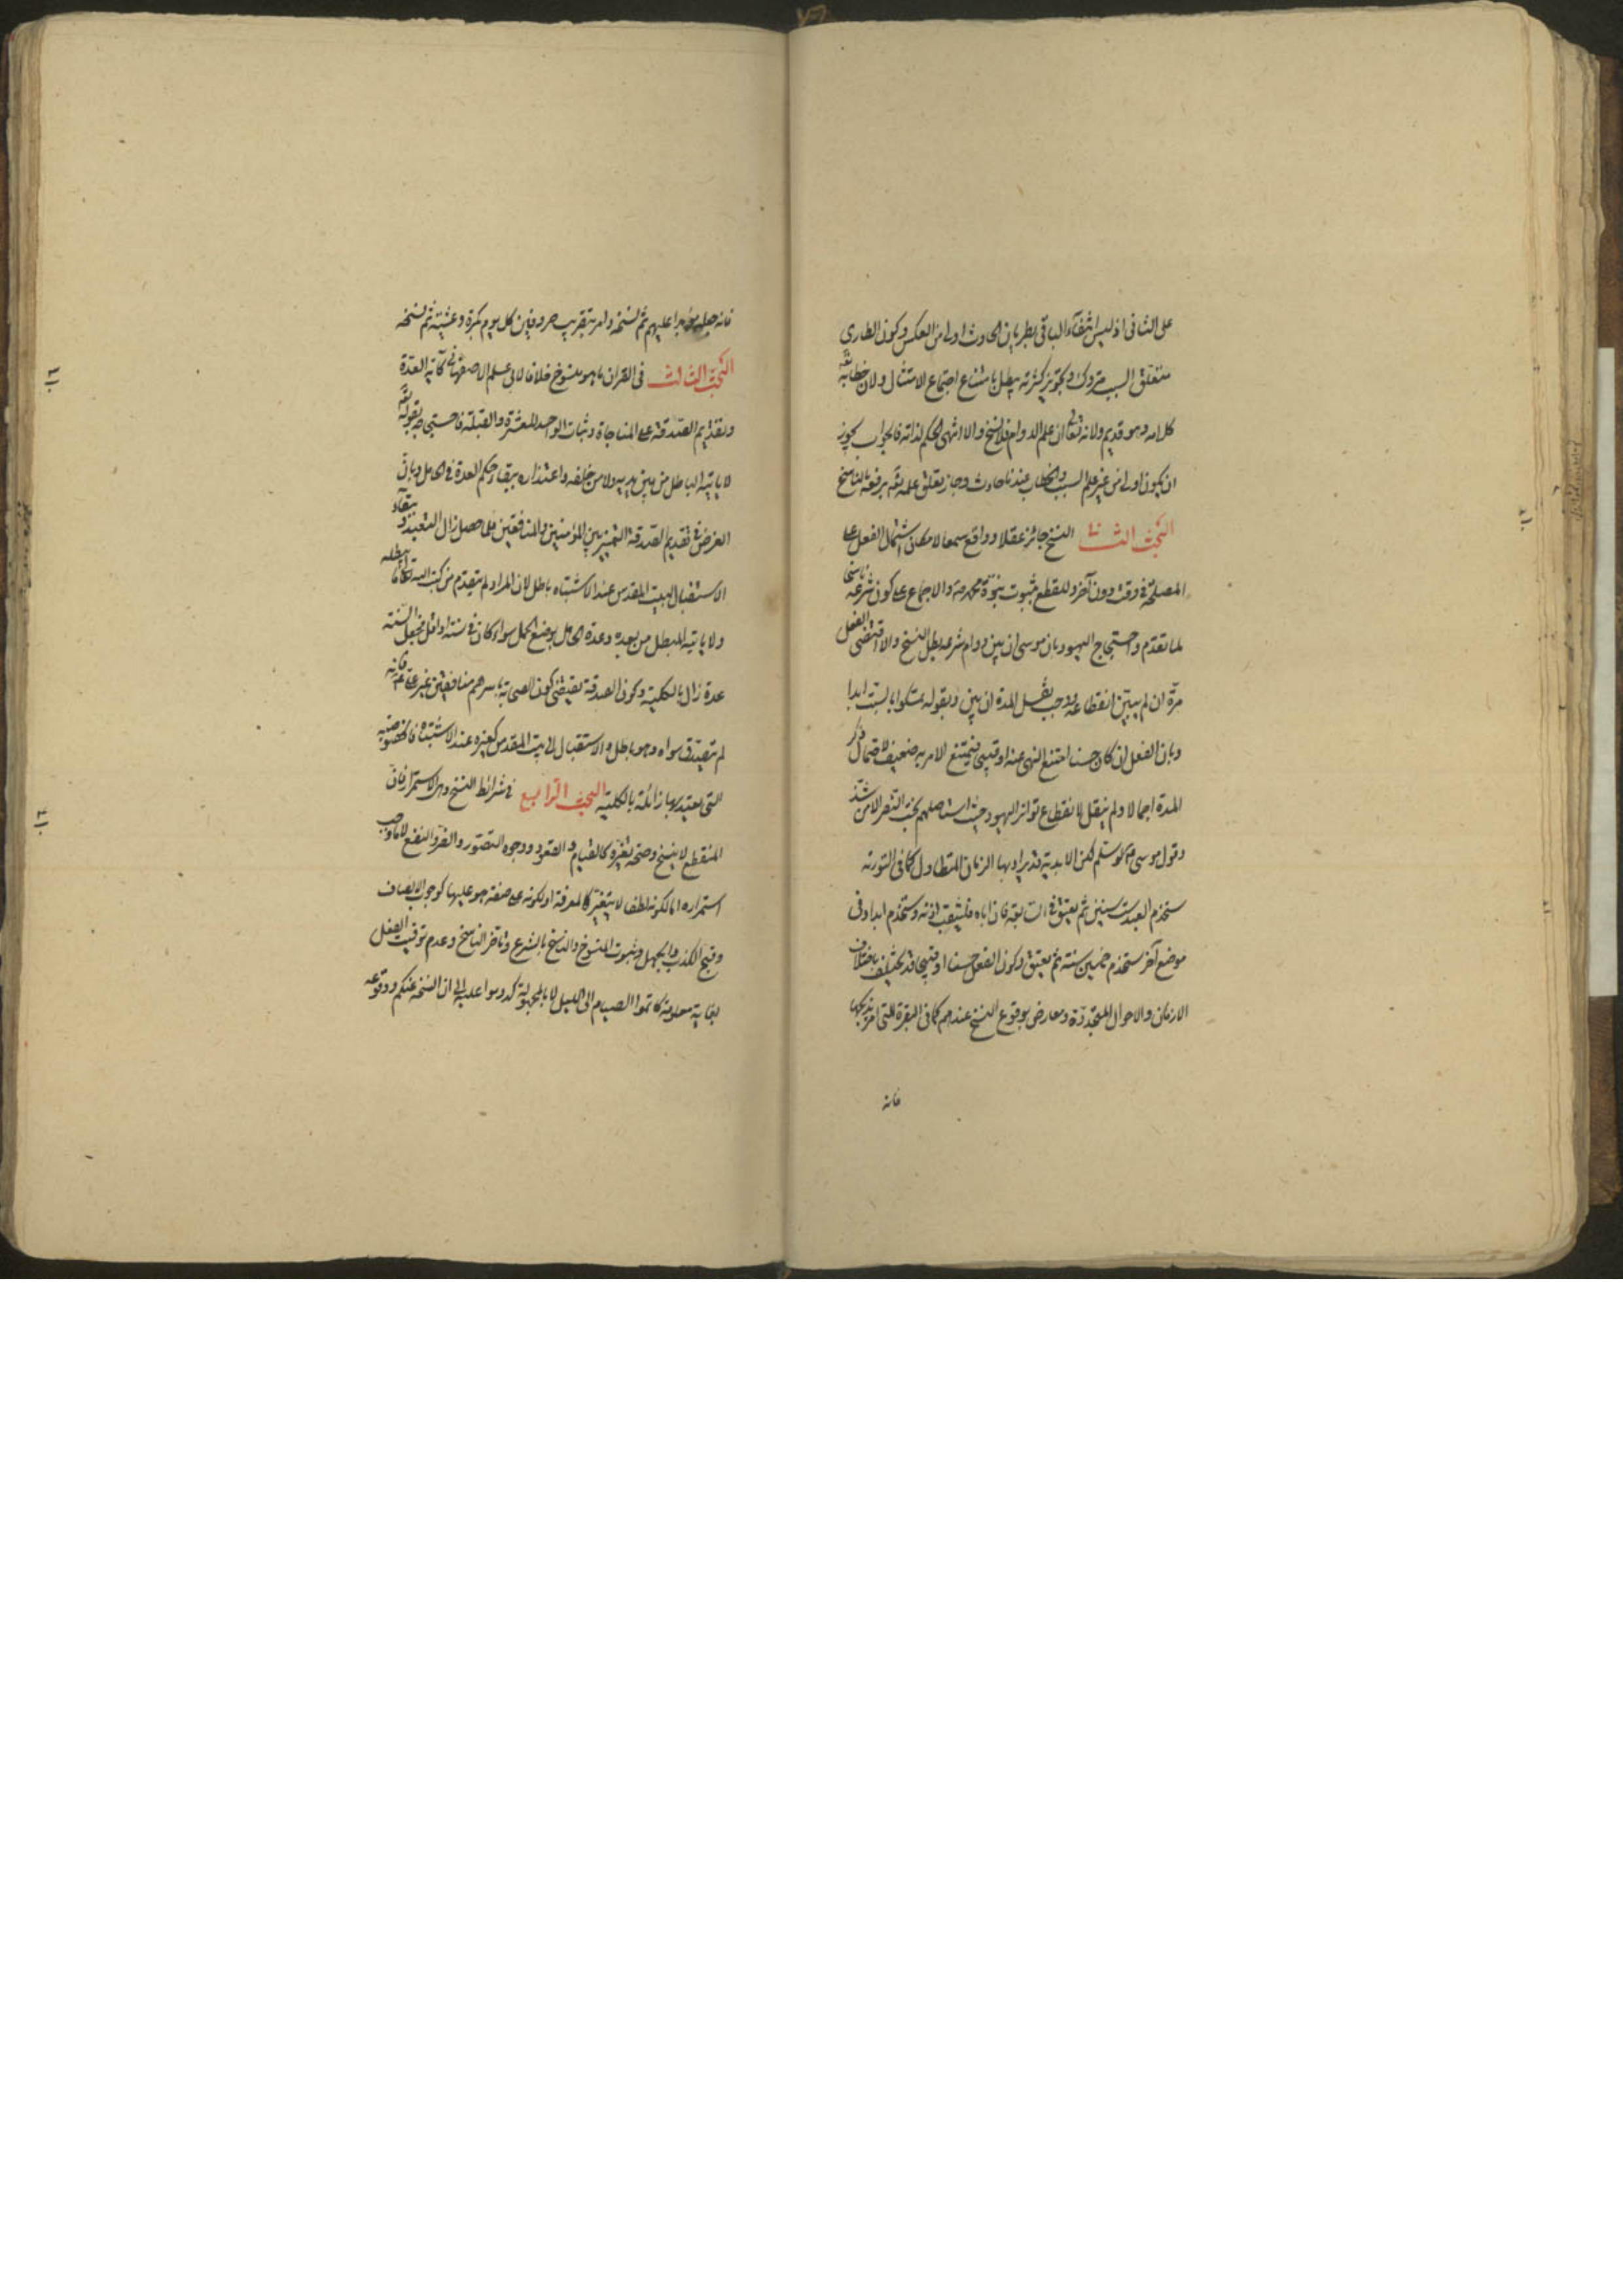 على الثانى اذ ليس انتفاء الباقى بطريان الحادث اولى من العكس وكون الطارى
متعلق السبب متروك وتجويز كثرته يبطل بامتناع اجتماع الامثال ولان خطابه تعالى
كلامه وهو قديم ولانه تعالى ان علم الدوام فلا نسخ والا انتهى الحكم لذاته فالجواب يجوز
ان يكون اولى من غير علم السبب والخطاب عندنا حادث وجاز تعلق علمه تعالى برفعه بالناسخ
البحث الثانى النسخ جائز عقلا وواقع سمعا لامكان اشتمال الفعل على
المصلحة فى وقت دون آخر وللقطع بثبوت نبوة محمد ص والاجماع على كون شرعه ناسخا
لما تقدم واحتجاج اليهود بان موسى ان بين دوام شرعه بطل النسخ والا اقتضى الفعل
مرة ان لم يبين انقطاعه ووجب نقل المدة ان بين وبقوله تمسكوا بالسبت ابدا
وبان الفعل ان كان حسنا امتنع النهى عنه او قبيحا فيمتنع الامر به ضعيف لاحتمال ذكر
المدة اجمالا ولم ينقل لانقطاع تواتر اليهود حيث استاصلهم بخت النصر الا من شذ
وقول موسى ع لو سلم لكن الابدية قد يراد بها الزمان المتطاول كما فى التورية
يستخدم العبد ست سنين ثم يعتق فى السابعة فان اباه فليثقب اذنه ويستخدم ابدا وفى
موضع آخر يستخدم خمسين سنة ثم يعتق وكون الفعل حسنا او قبيحا قد يختلف باختلاف
الازمان والاحوال المتجددة ومعارض بوقوع النسخ عندهم كما فى البقرة التى امر بذبحها
فانه
فانه جعله مؤبدا عليهم ثم نسخه وامر بتقريب خروفين كل يوم بكرة وعشية ثم نسخه
البحث الثالث فى القران ما هو منسوخ خلافا لابى مسلم الاصفهانى كآية العدة
وتقديم الصدقة على المناجاة وثبات الواحد للعشرة والقبلة فاحتجاجه بقوله تعالى
لا ياتيه الباطل من بين يديه ولا من خلفه واعتذاره ببقاء حكم العدة فى الحامل وبان
الغرض فى تقديم الصدقة التمييز بين المؤمنين والمنافقين فلما حصل زال التعبد وبقاء
الاستقبال لبيت المقدس عند الاشتباه باطل لان المراد لم يتقدم من كتب الله تعالى ما يبطله
ولا ياتيه المبطل من بعده وعدة الحامل بوضع الحمل سواء كان فى سنة او اقل فجعل السنة
عدة زال بالكلية وكون الصدقة يقتضى كون الصحابة باسرهم منافقين غير على ع فانه
لم يتصدق سواه وهو باطل والاستقبال الى بيت المقدس كغيره عند الاشتباه فالخصوصية
التى يعتد بها زائلة بالكلية البحث الرابع فى شرائط النسخ وهى الاستمرار فان
المنقطع لا ينسخ وصحة تغيره كالقيام والقعود ووجوه التصور والضر والنفع لا ما وجب
استمراره اما لكونه لطفا لا يتغير كالمعرفة او لكونه على صفة هو عليها كوجوب الانصاف
وقبح الكذب والجهل وثبوت المنسوخ والناسخ بالشرع وتاخر الناسخ وعدم توقيت الفعل
بغاية معلومة كاتموا الصيام الى الليل لا بالمجهولة كدوموا عليه الى ان انسخه عنكم ووقوعه